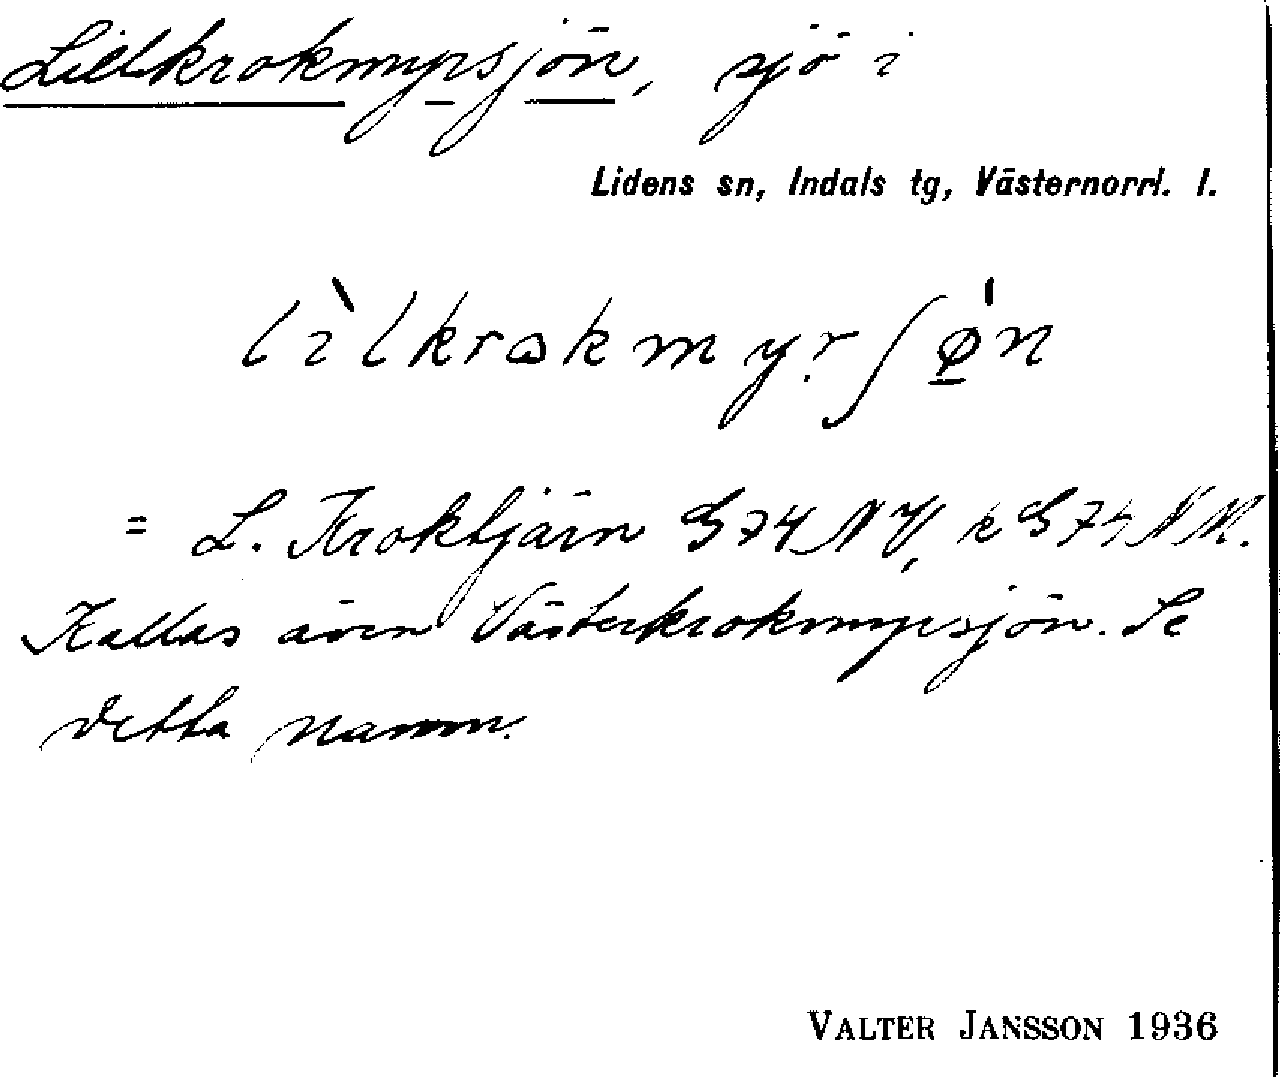 Lillkrokmyrsjön, sjö i
Lidens sn, Indals tg, Västernorrl. l.
lìlkrokmyrʃǿ̱n
= L. Kroktjärn G74NV, k G74NM.
Kallas även Västerkrokmyrsjön. Se
detta namn.
VALTER JANSSON 1936